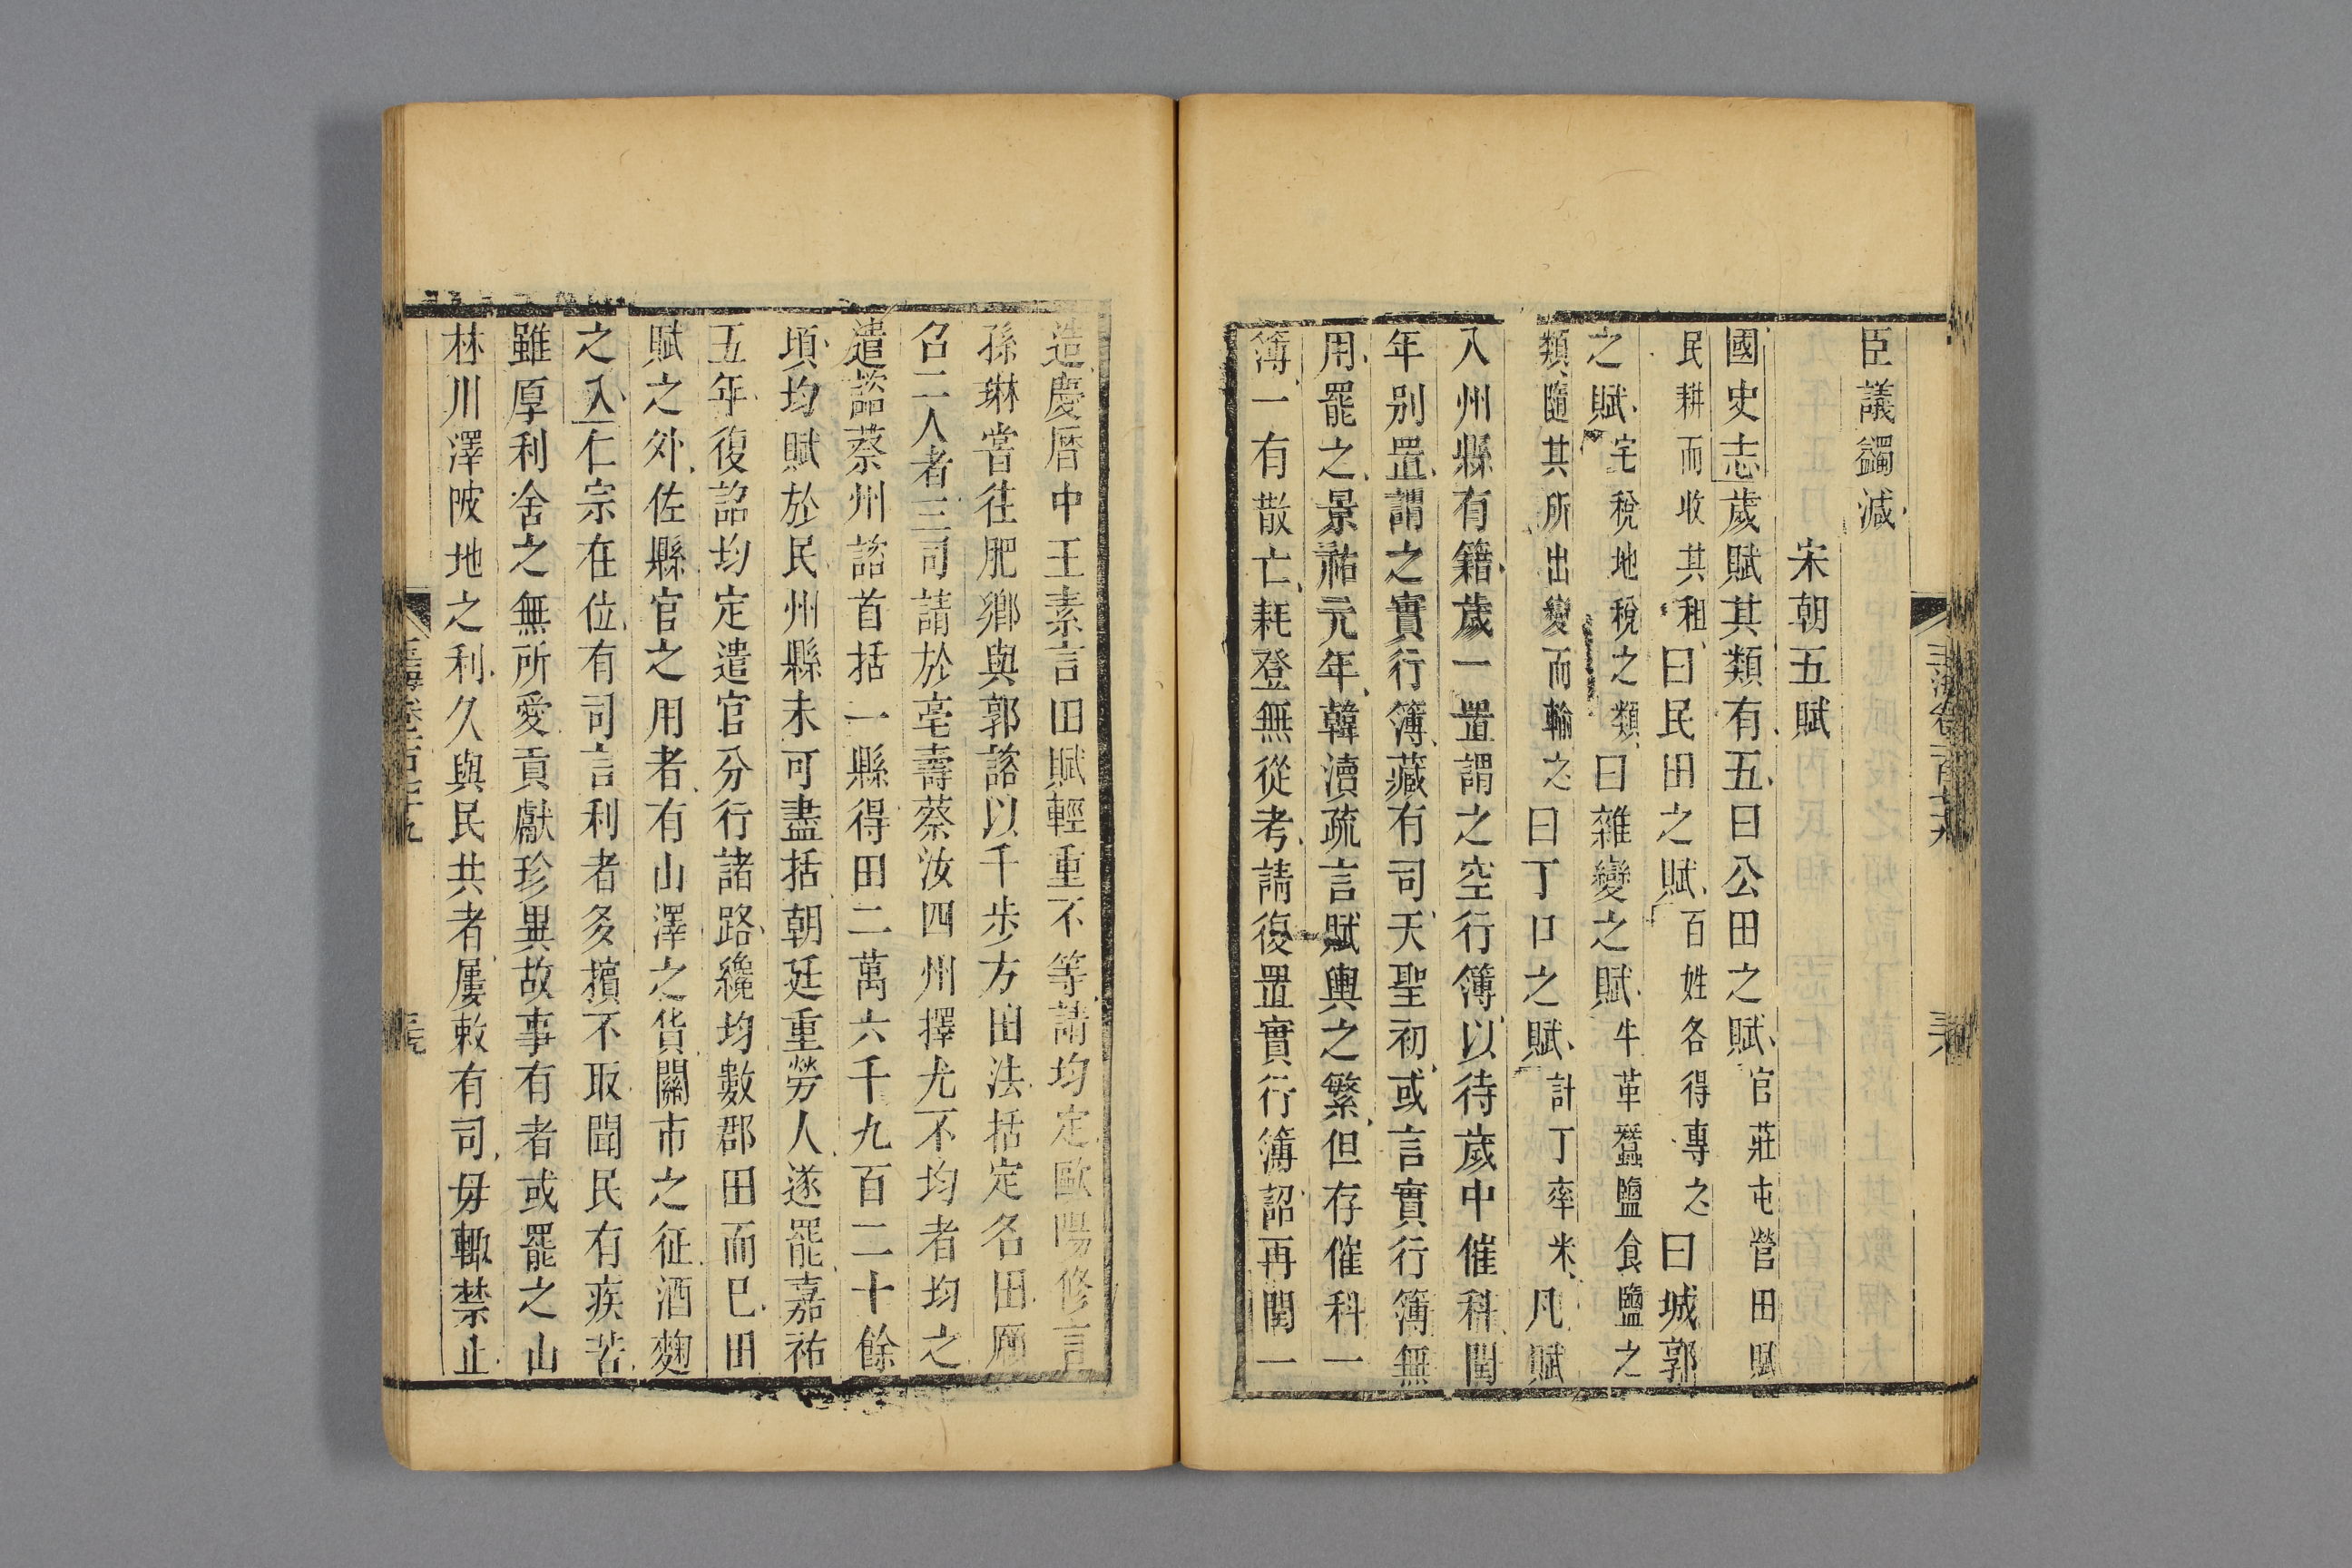 臣議蠲減
宋朝五賦
國史志歲賦其類有五曰公田之賦官莊屯營田賦
民耕而收其租曰民田之賦百姓各得專之曰城郭
之賦宅稅地稅之類曰雜變之賦牛革蠶鹽食鹽之
類隨其所出變而輸之曰丁口之賦計丁率米凡賦
入州縣有籍歲一置謂之空行簿以待歲中催科閏
年别置謂之實行簿藏有司天聖初或言實行簿無
用罷之景祐元年韓瀆疏言賦輿之繁但存催科一
簿一有散亡耗登無從考請復置實行簿詔再閏一
造慶曆中王素言田賦輕重不等請均定歐陽修言
孫琳嘗往肥鄉與郭諮以千步方田法括定名田願
召二人者三司請於亳壽蔡汝四州擇尤不均者均之
遣諮蔡州諮首括一縣得田二萬六千九百二十餘
頃均賦於民州縣未可盡括朝廷重勞人遂罷嘉祐
五年復詔均定遣官分行諸路纔均數郡田而巳田
賦之外佐縣官之用者有山澤之貨關市之征酒麴
之入仁宗在位有司言利者多擯不取聞民有疾苦
雖厚利舍之無所愛貢獻珍異故事有者或罷之山
林川澤陂地之利久與民共者屢敕有司毋輒禁止